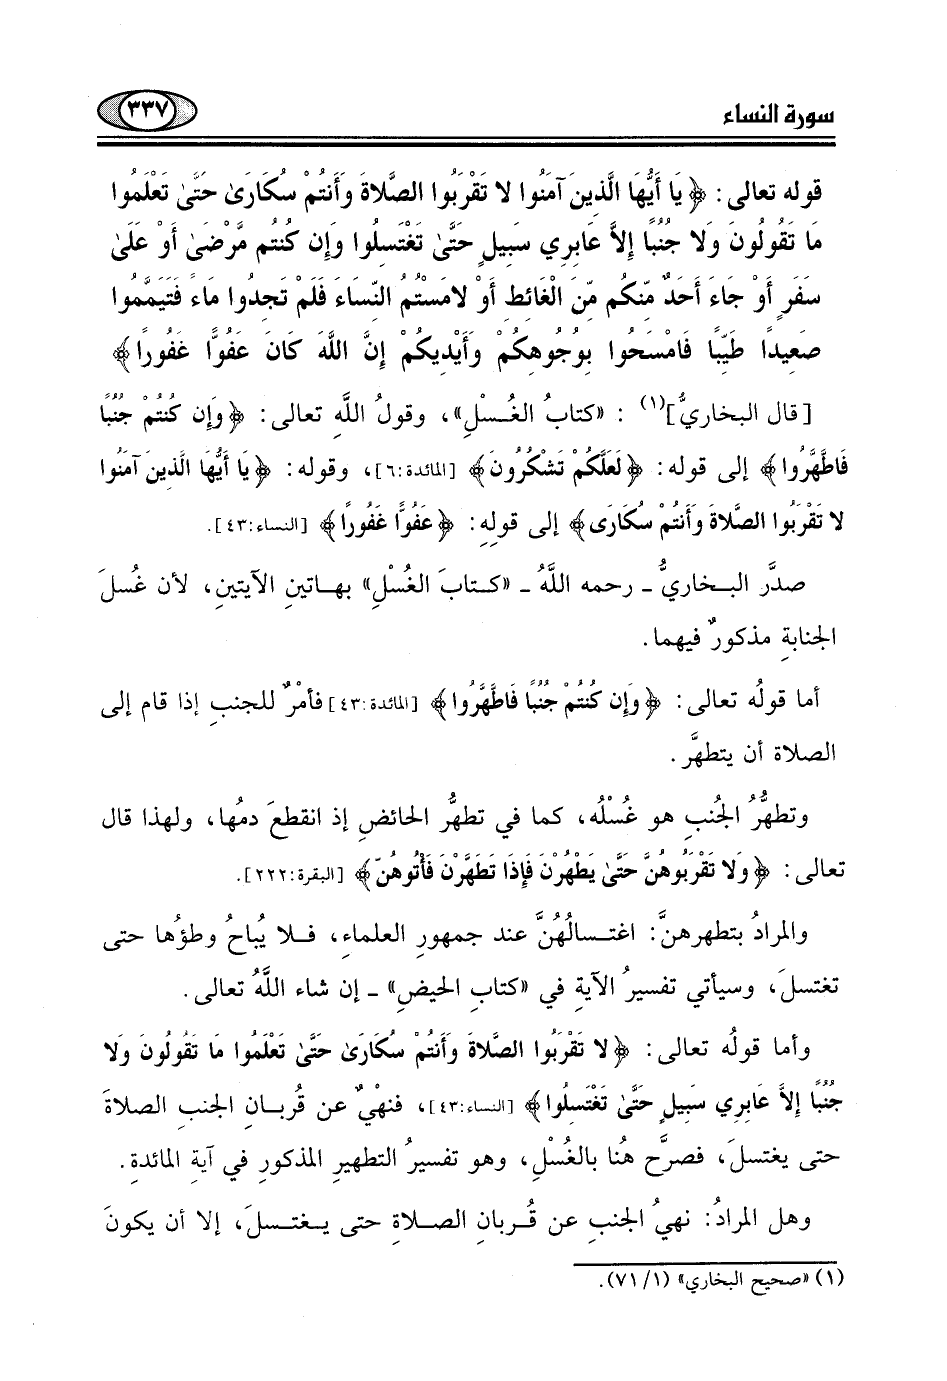 سورة النساء
٣٣٧
قوله تعالى: ﴿يَا أَيُّهَا الَّذِينَ آمَنُوا لا تَقْرَبُوا الصَّلاةَ وَأَنتُمْ سُكَارَىٰ حَتَّىٰ تَعْلَمُوا
مَا تَقُولُونَ وَلا جُنُبًا إِلاَّ عَابِرِي سَبِيلٍ حَتَّىٰ تَغْتَسِلُوا وَإِن كُنتُم مَّرْضَىٰ أَوْ عَلَىٰ
سَفَرٍ أَوْ جَاءَ أَحَدٌ مِّنكُم مِّنَ الْغَائِطِ أَوْ لامَسْتُمُ النِّسَاءَ فَلَمْ تَجِدُوا مَاءً فَتَيَمَّمُوا
صَعِيدًا طَيِّبًا فَامْسَحُوا بِوُجُوهِكُمْ وَأَيْدِيكُمْ إِنَّ اللَّهَ كَانَ عَفُوًّا غَفُورًا﴾
[قال البخاريُّ](١) : «كتابُ الغُسْلِ»، وقولُ اللَّهِ تعالى: ﴿وَإِن كُنتُمْ جُنُبًا
فَاطَّهَّرُوا﴾ إلى قوله: ﴿لَعَلَّكُمْ تَشْكُرُونَ﴾ [المائدة:٦]، وقوله: ﴿يَا أَيُّهَا الَّذِينَ آمَنُوا
لا تَقْرَبُوا الصَّلاةَ وَأَنتُمْ سُكَارَى﴾ إلى قولِهِ: ﴿عَفُوًّا غَفُورًا﴾ [النساء:٤٣].
صدَّر البخاريُّ ـ رحمه اللَّهُ ـ «كتابَ الغُسْلِ» بهاتينِ الآيتينِ، لأن غُسلَ
الجنابةِ مذكورٌ فيهما.
أما قولُه تعالى: ﴿وَإِن كُنتُمْ جُنُبًا فَاطَّهَّرُوا﴾ [المائدة:٤٣] فأمْرٌ للجنبِ إذا قام إلى
الصلاة أن يتطهَّر.
وتطهُّرُ الجُنبِ هو غُسْلُه، كما في تطهُّرِ الحائضِ إذ انقطعَ دمُها، ولهذا قال
تعالى: ﴿وَلا تَقْرَبُوهُنَّ حَتَّىٰ يَطْهُرْنَ فَإِذَا تَطَهَّرْنَ فَأْتُوهُنَّ﴾ [البقرة:٢٢٢].
والمرادُ بتطهرهنَّ: اغتسالُهُنَّ عند جمهورِ العلماءِ، فلا يُباحُ وطؤُها حتى
تغتسلَ، وسيأتي تفسيرُ الآيةِ في «كتابِ الحيضِ» ـ إن شاء اللَّهُ تعالى.
وأما قولُه تعالى: ﴿لا تَقْرَبُوا الصَّلاةَ وَأَنتُمْ سُكَارَىٰ حَتَّىٰ تَعْلَمُوا مَا تَقُولُونَ وَلا
جُنُبًا إِلاَّ عَابِرِي سَبِيلٍ حَتَّىٰ تَغْتَسِلُوا﴾ [النساء:٤٣]، فنهْيٌ عن قُربانِ الجنبِ الصلاةَ
حتى يغتسلَ، فصرَّح هُنا بالغُسْلِ، وهو تفسيرُ التطهيرِ المذكورِ في آيةِ المائدة.
وهل المرادُ: نهيُ الجنبِ عن قُربانِ الصلاةِ حتى يغتسلَ، إلا أن يكونَ
(١) «صحيح البخاري» (٧١/١).